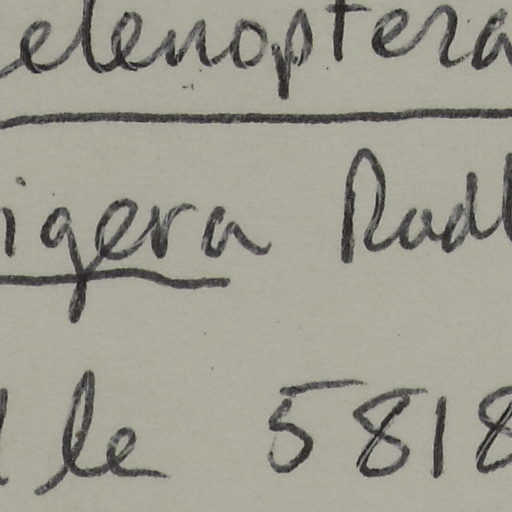 elenoptera
igera Radl
le 5818